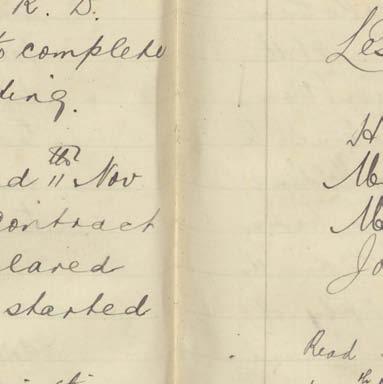 R. D.
to complete
ding.
d 11th Nov
contract
lared
started
Les
H
M
M
Jo
Read